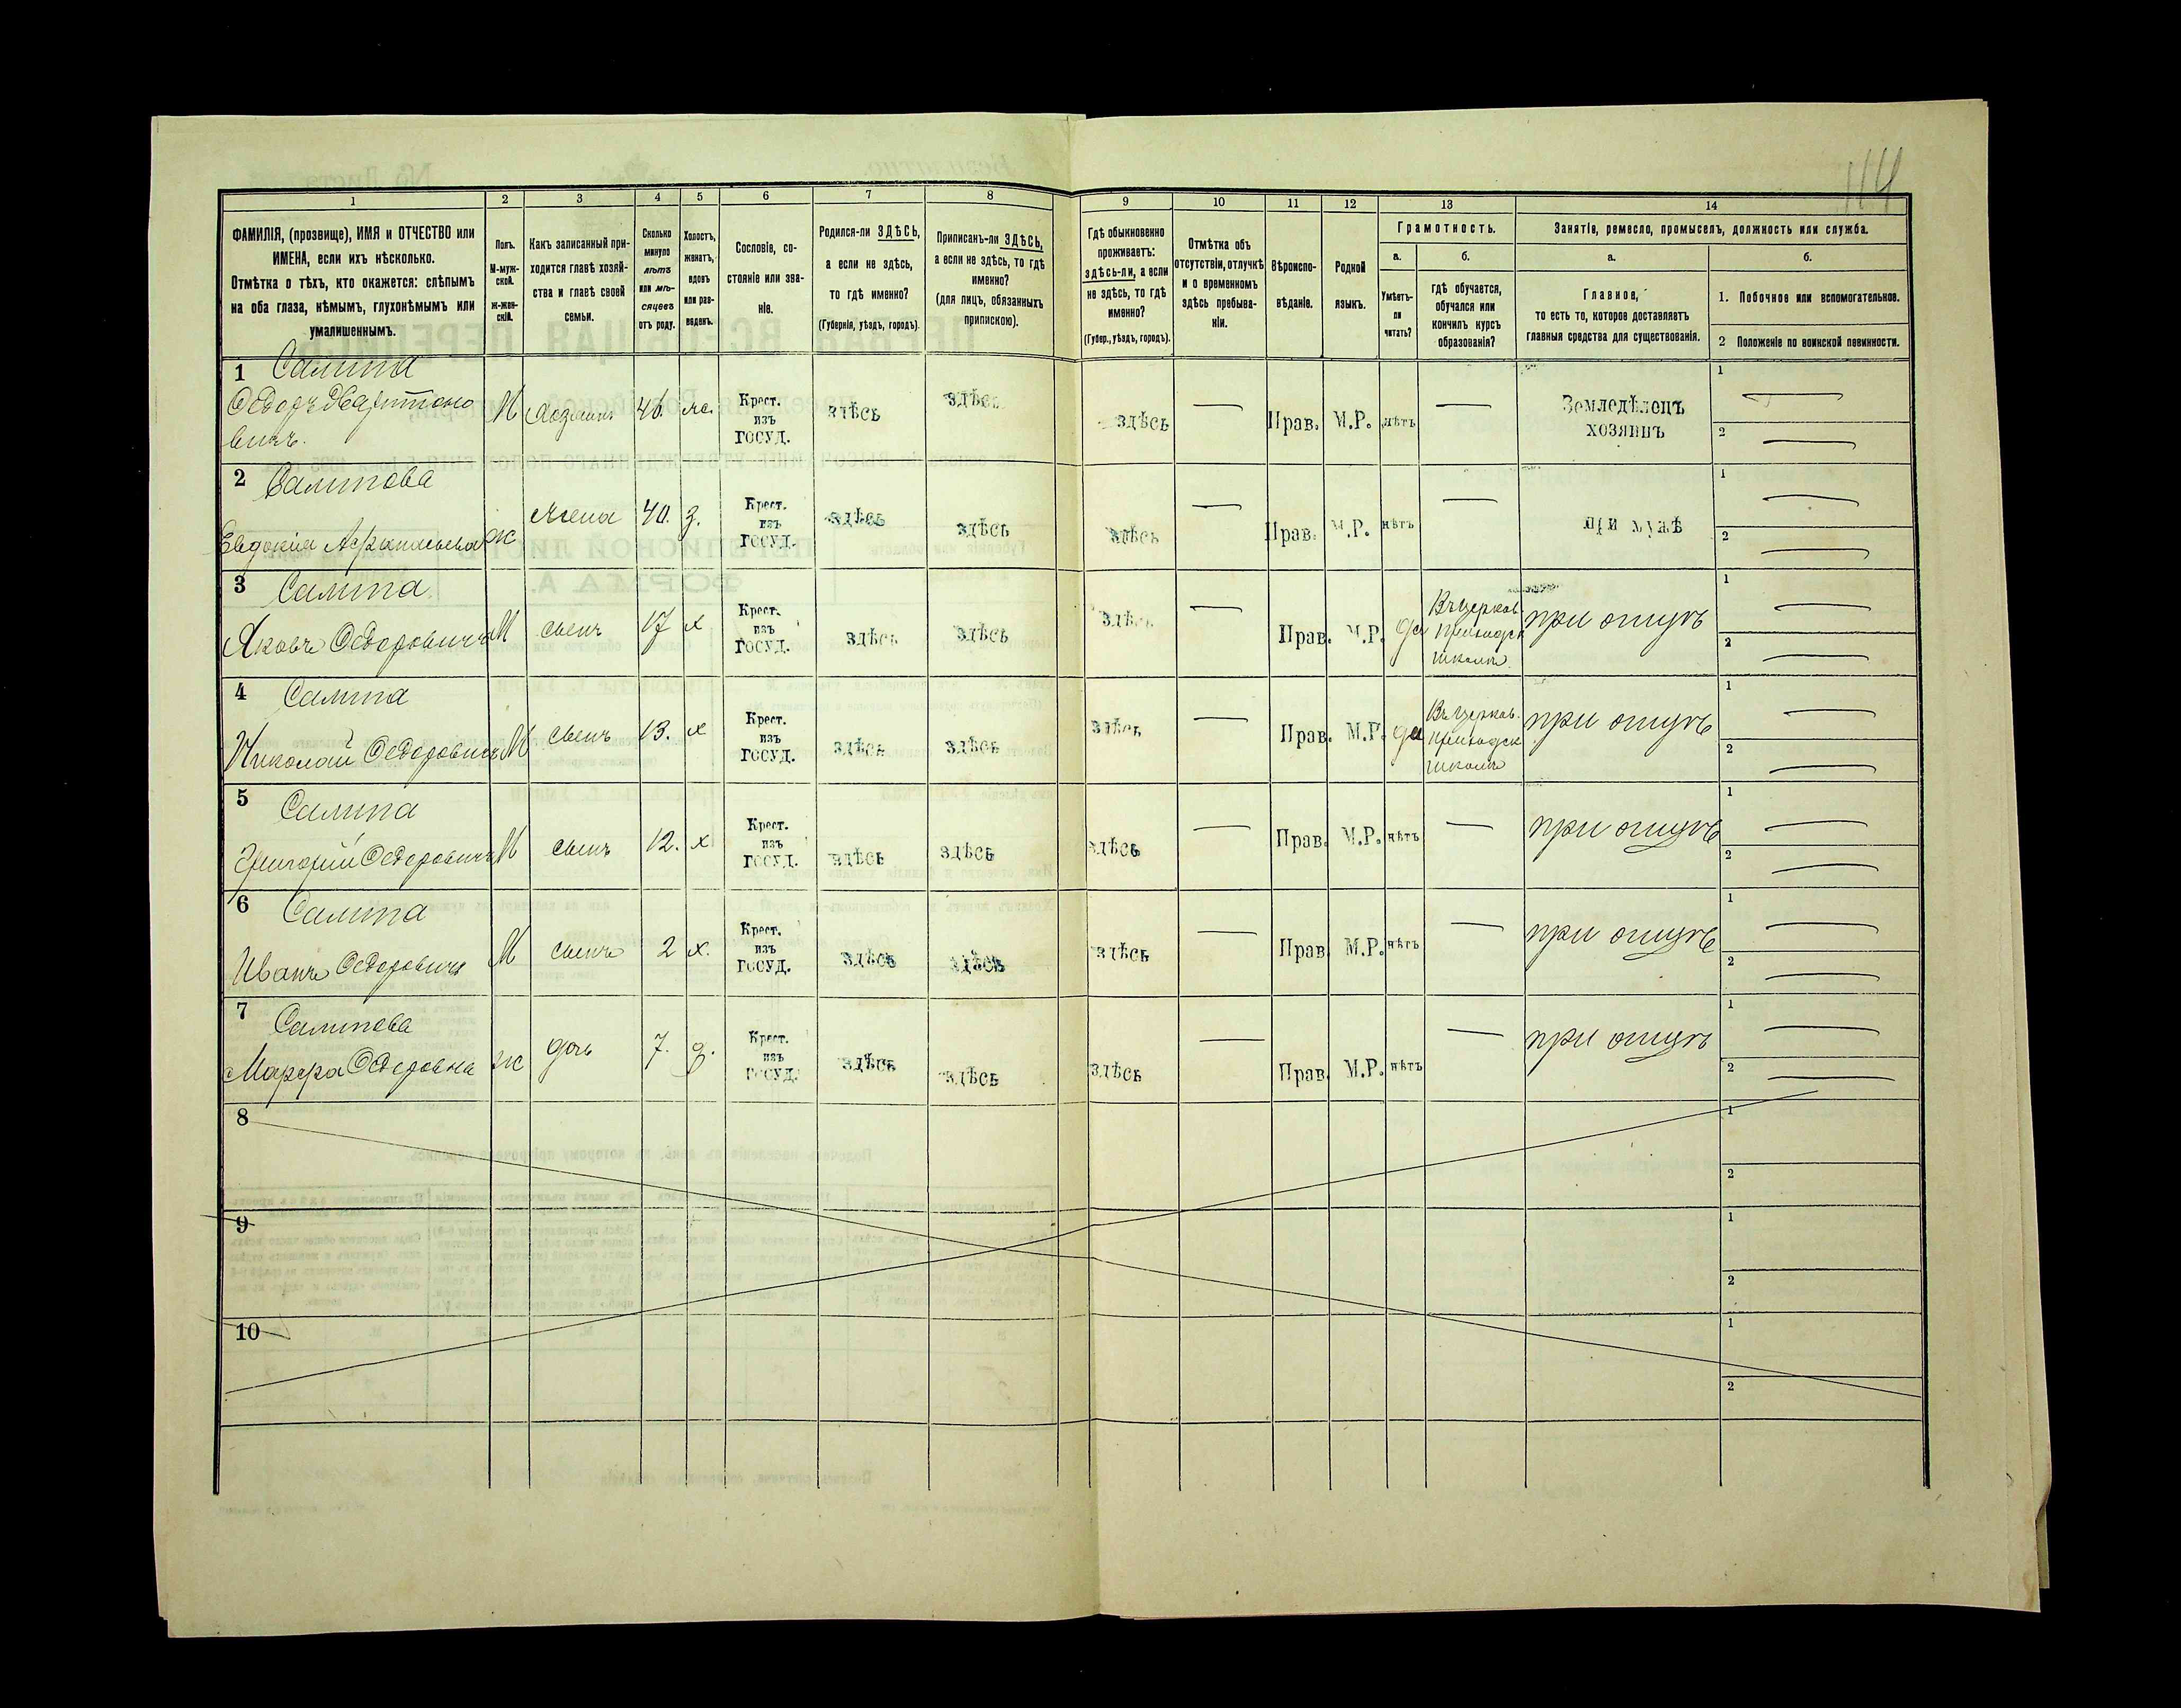 114
1 2 3 4 5 6 7 8 9 10 11 12 13 14
ФАМИЛІЯ, (прозвище), ИМЯ и ОТЧЕСТВО или
ИМЕНА, если ихъ нѣсколько.
Отмѣтка о тѣхъ, кто окажется: слѣпымъ
на оба глаза, нѣмымъ, глухонѣмымъ или
умалишеннымъ.
Полъ.
М-муж-
ской.
ж-жен-
скій.
Какъ записанный при-
ходится главѣ хозяй-
ства и главѣ своей
семьи.
Сколько
минуло
лѣтъ
или мѣ-
сяцевъ
отъ роду.
Холостъ,
женатъ,
вдовъ
или раз-
веденъ.
Сословіе, со-
стояніе или зва-
ніе.
Родился-ли ЗДѢСЬ,
а если не здѣсь,
то гдѣ именно?
(Губернія, уѣздъ, городъ).
Приписанъ-ли ЗДѢСЬ,
а если не здѣсь, то гдѣ
именно?
(для лицъ, обязанныхъ
припискою).
Гдѣ обыкновенно
проживаетъ:
здѣсь-ли, а если
не здѣсь, то гдѣ
именно?
(Губер., уѣздъ, городъ).
Отмѣтка объ
отсутствіи, отлучкѣ
и о временномъ
здѣсь пребыва-
ніи.
Вѣроиспо-
вѣданіе.
Родной
языкъ.
Грамотность.
а.
Умѣетъ-
ли
читать?
б.
гдѣ обучается,
обучался или
кончилъ курсъ
образованія?
Занятіе, ремесло, промыселъ, должность или служба.
а.
Главное,
то есть то, которое доставляетъ
главныя средства для существованія.
б.
1. Побочное или вспомогательное.
2 Положеніе по воинской повинности.
1 Салипа
Ѳедоръ Харитоно
вичъ.
М хозяинъ 46. ж. Крест. изъ ГОСУД. здѣсь здѣсь здѣсь — Прав. М.Р. нѣтъ — Земледѣлецъ хозяинъ 1 — 2 —
2 Салипова
Евдокія Афанасьева
ж жена 40. з. Крест. изъ ГОСУД. здѣсь здѣсь здѣсь — Прав. М.Р. нѣтъ — при мужѣ 1 — 2 —
3 Салипа
Яковъ Ѳедоровичъ
М сынъ 17 х Крест. изъ ГОСУД. здѣсь здѣсь здѣсь — Прав. М.Р. да Въ церков. приходск школѣ при отцѣ 1 — 2 —
4 Салипа
Николай Ѳедоровичъ
М сынъ 13. х Крест. изъ ГОСУД. здѣсь здѣсь здѣсь — Прав. М.Р. да Въ церков. приходск школѣ при отцѣ 1 — 2 —
5 Салипа
Григорій Ѳедоровичъ
М сынъ 12. х Крест. изъ ГОСУД. здѣсь здѣсь здѣсь — Прав. М.Р. нѣтъ — при отцѣ 1 — 2 —
6 Салипа
Иванъ Ѳедоровичъ
М сынъ 2 х. Крест. изъ ГОСУД. здѣсь здѣсь здѣсь — Прав. М.Р. нѣтъ — при отцѣ 1 — 2 —
7 Салипова
Марфа Ѳедоровна
ж дочь 7. д. Крест. изъ ГОСУД. здѣсь здѣсь здѣсь — Прав. М.Р. нѣтъ — при отцѣ 1 — 2 —
8 1
2
9 1
2
10 1
2